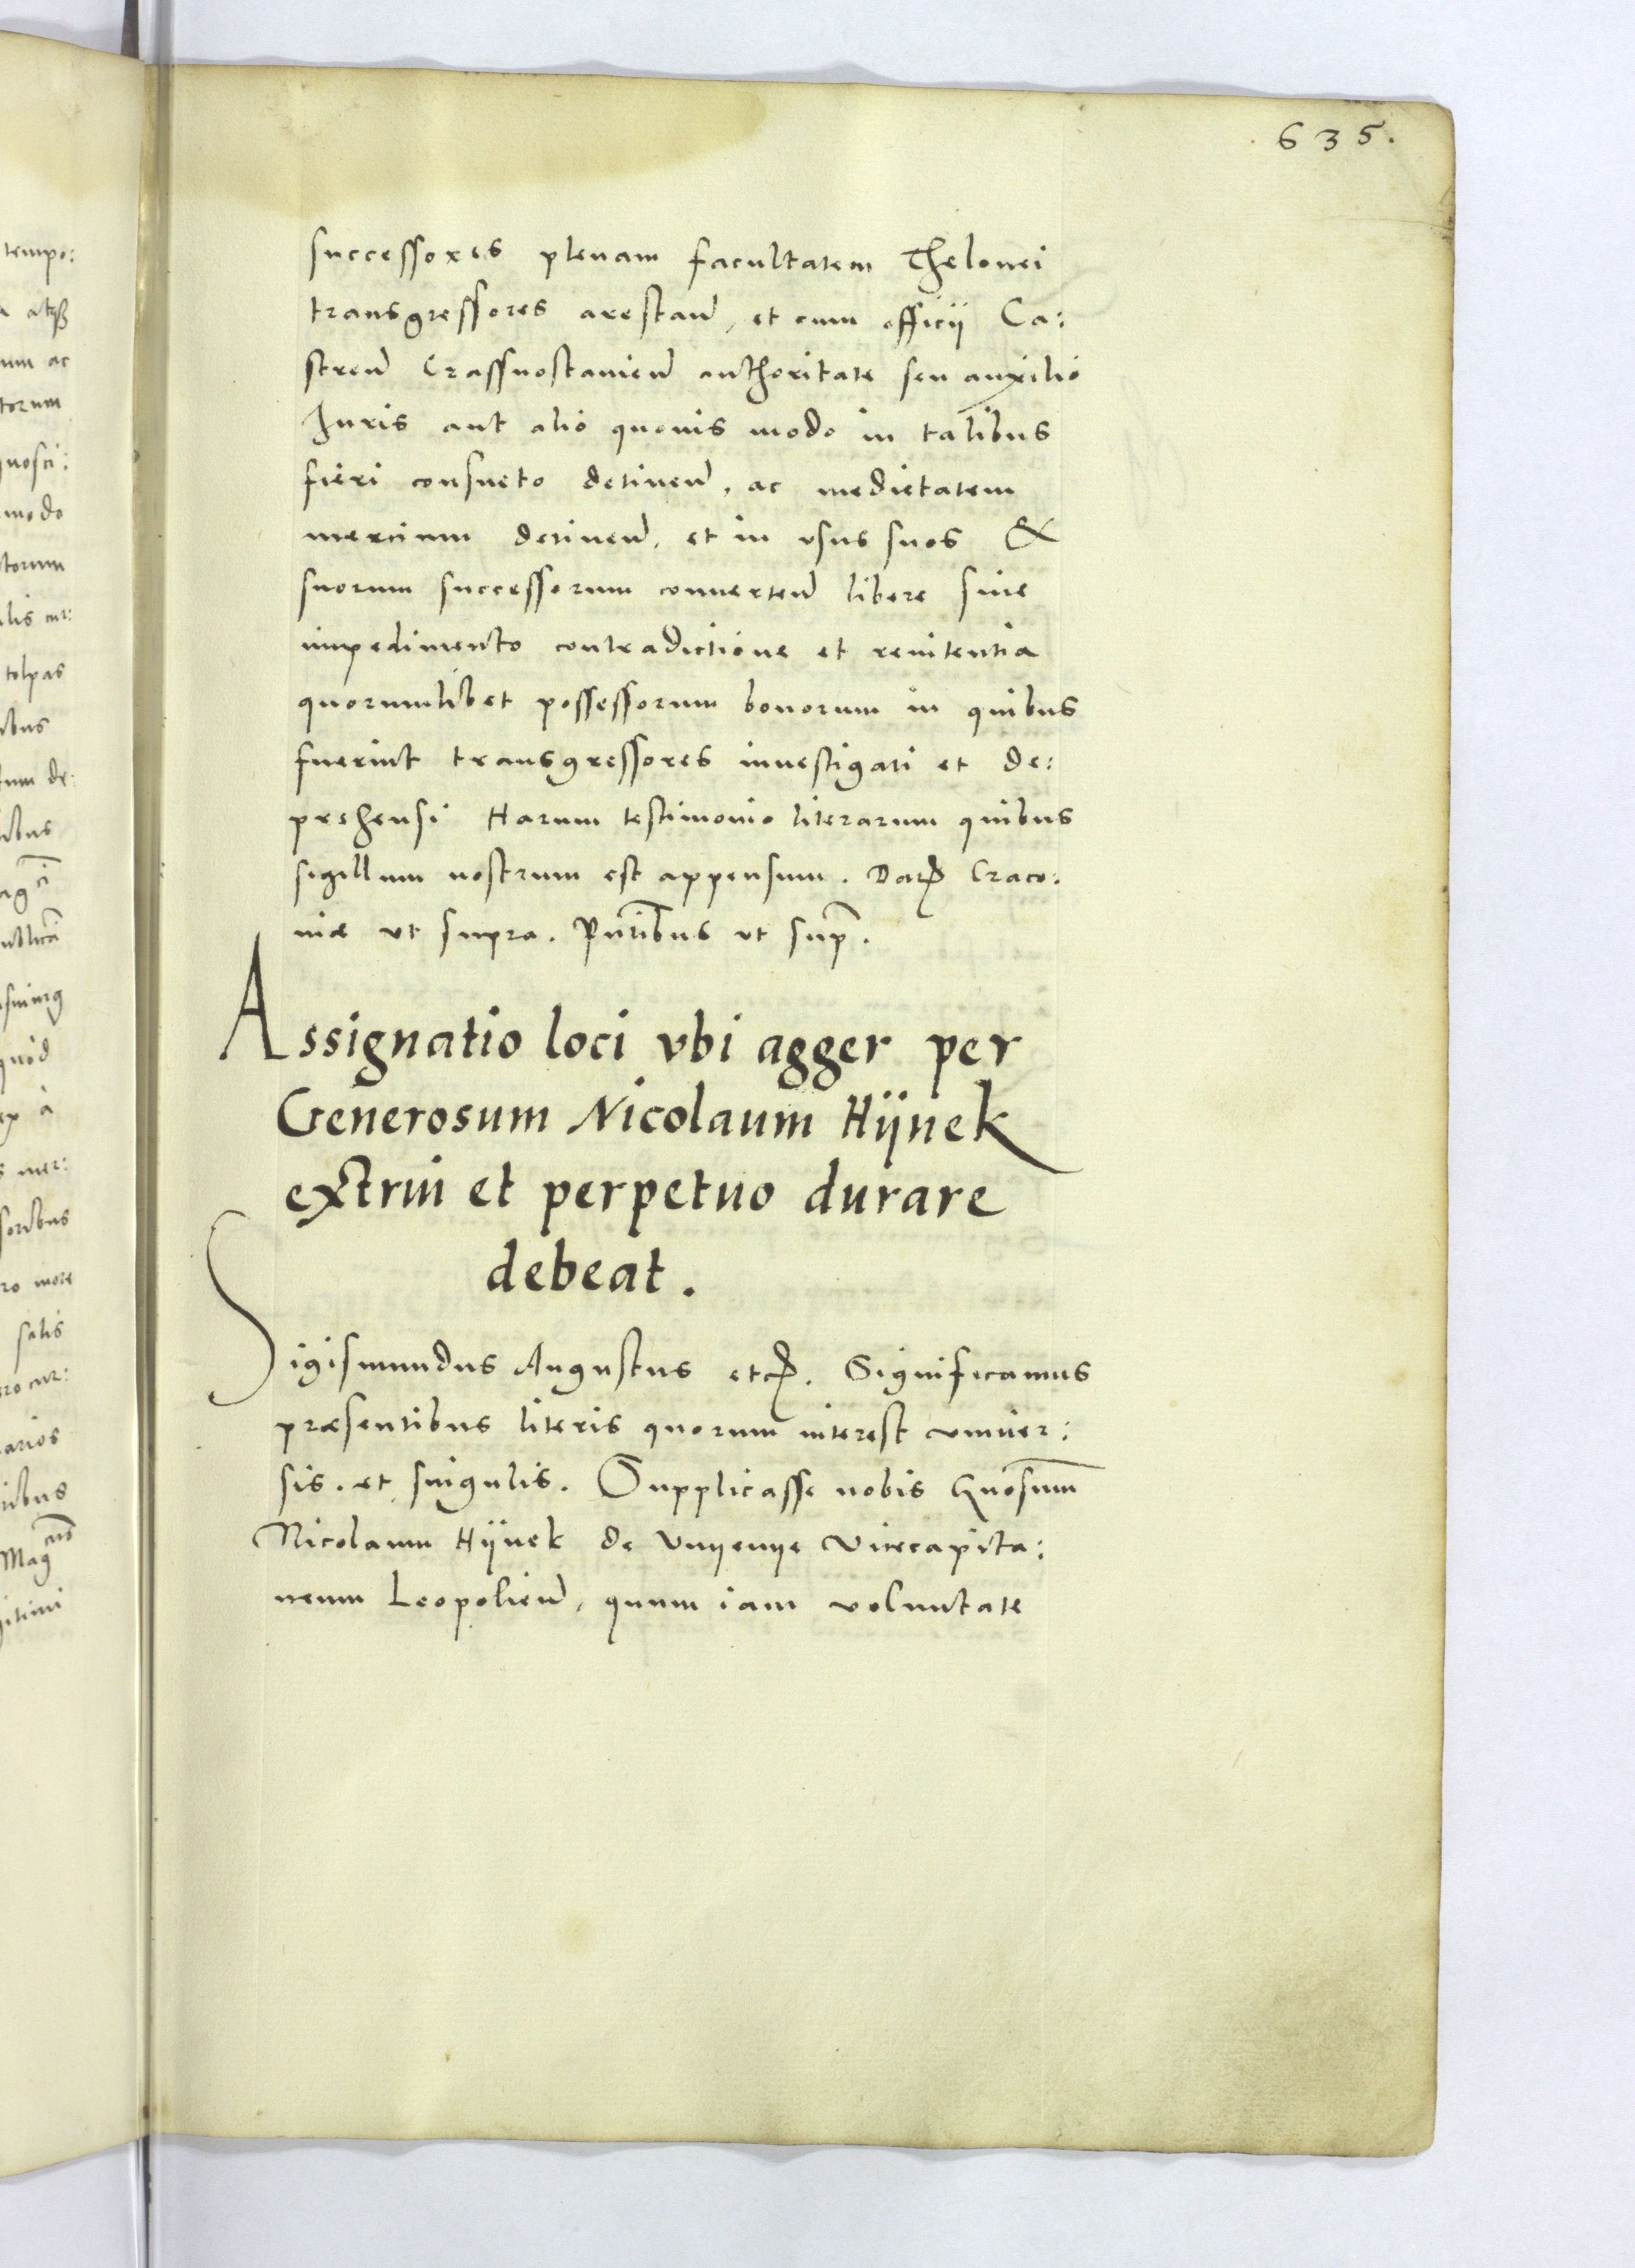 635.
successores plenam facultatem Thelonei
transgressores arestan̄, et cum officij Ca:
stren̄ Crassnostavien̄ authoritate seu auxilio
Iuris aut alio quovis modo in talibus
fieri consueto detinen̄, ac medietatem
mercium detinen̄, et in usus suos &
suorum successorum converten̄ libere sine
impedimento contradictione et renitentia
quorumlibet possessorum bonorum in quibus
fuerint transgressores investigati et de:
prehensi Harum testimonio literarum quibus
sigillum nostrum est appensum. Dat. Craco:
niæ ut supra. Pn̄tibus ut sup̄.
Assignatio loci vbi agger per
Generosum Nicolaum Hÿnek
extrui et perpetuo durare
debeat.
Sigismundus Augustus etc. Significamus
præsentibus literis quorum interest univer:
sis. et singulis. Supplicasse nobis Gn̄osum
Nicolaum Hÿnek de Vnyenye Vicecapita:
neum Leopolien̄, quum iam voluntate